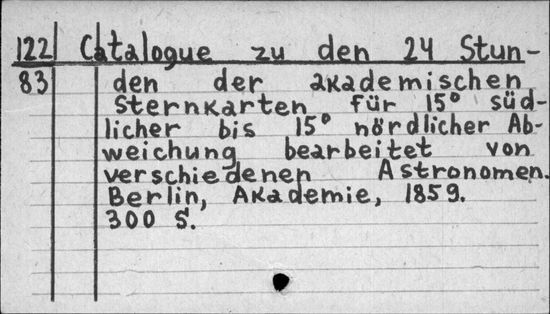 122 Catalogue zu den 24 Stun-
83 den der akademischen
Sternkarten für 15° süd-
licher bis 15° nördlicher Ab-
weichung bearbeitet von
verschiedenen Astronomen.
Berlin, Akademie, 1859.
300 S.